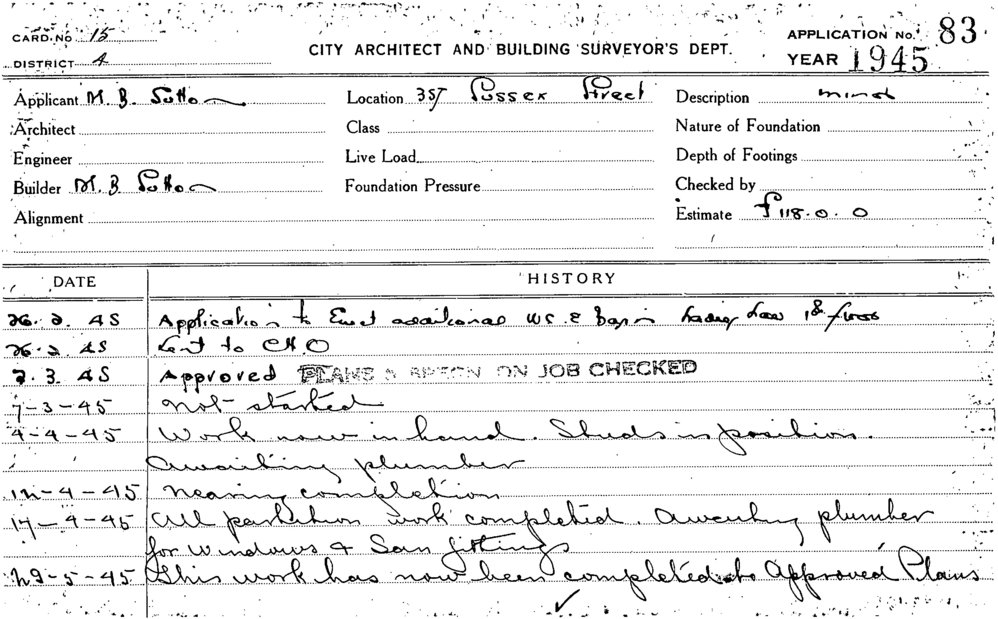 CARD. NO 15
CITY ARCHITECT AND BUILDING SURVEYOR'S DEPT.
APPLICATION No. 83
DISTRICT 4
YEAR 1945
Applicant M. B. Sutton Location 357 Sussex Street Description minor
Architect Class Nature of Foundation
Engineer Live Load Depth of Footings
Builder M. B Sutton Foundation Pressure Checked by
Alignment Estimate £118. 0. 0
DATE HISTORY
26. 2. 45 Application to Erect additional W.C. & Basin 1st floor
26. 2. 45 Sent to CHO
2. 3. 45 Approved PLANS & SPECN ON JOB CHECKED
7-3-45 Not started
4-4-45 Work now in hand. Studs in position.
Awaiting plumber
12-4-45 Nearing completion
17-4-45 All partition work completed. Awaiting plumber
for windows & San fittings
29-5-45 This work has now been completed to Approved Plans